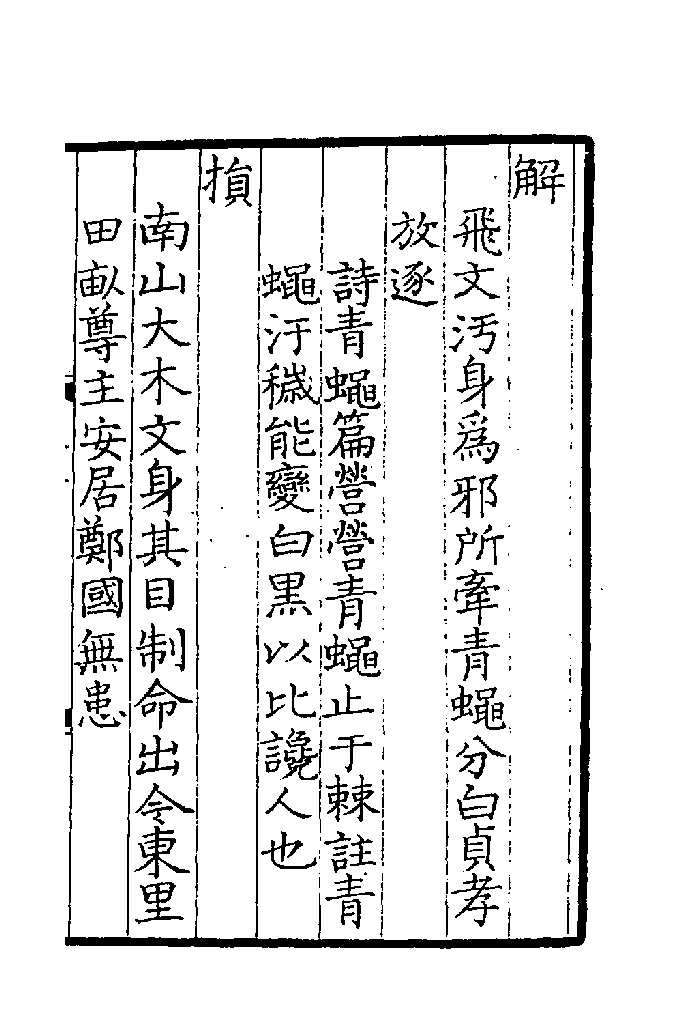 解
飛文汚身為邪所牽青蠅分白貞孝
放逐
詩青蠅篇營營青蠅止于棘註青
蠅汙穢能變白黒以比讒人也
損
南山大木文身其目制命出令東里
田畝尊主安居鄭國無患